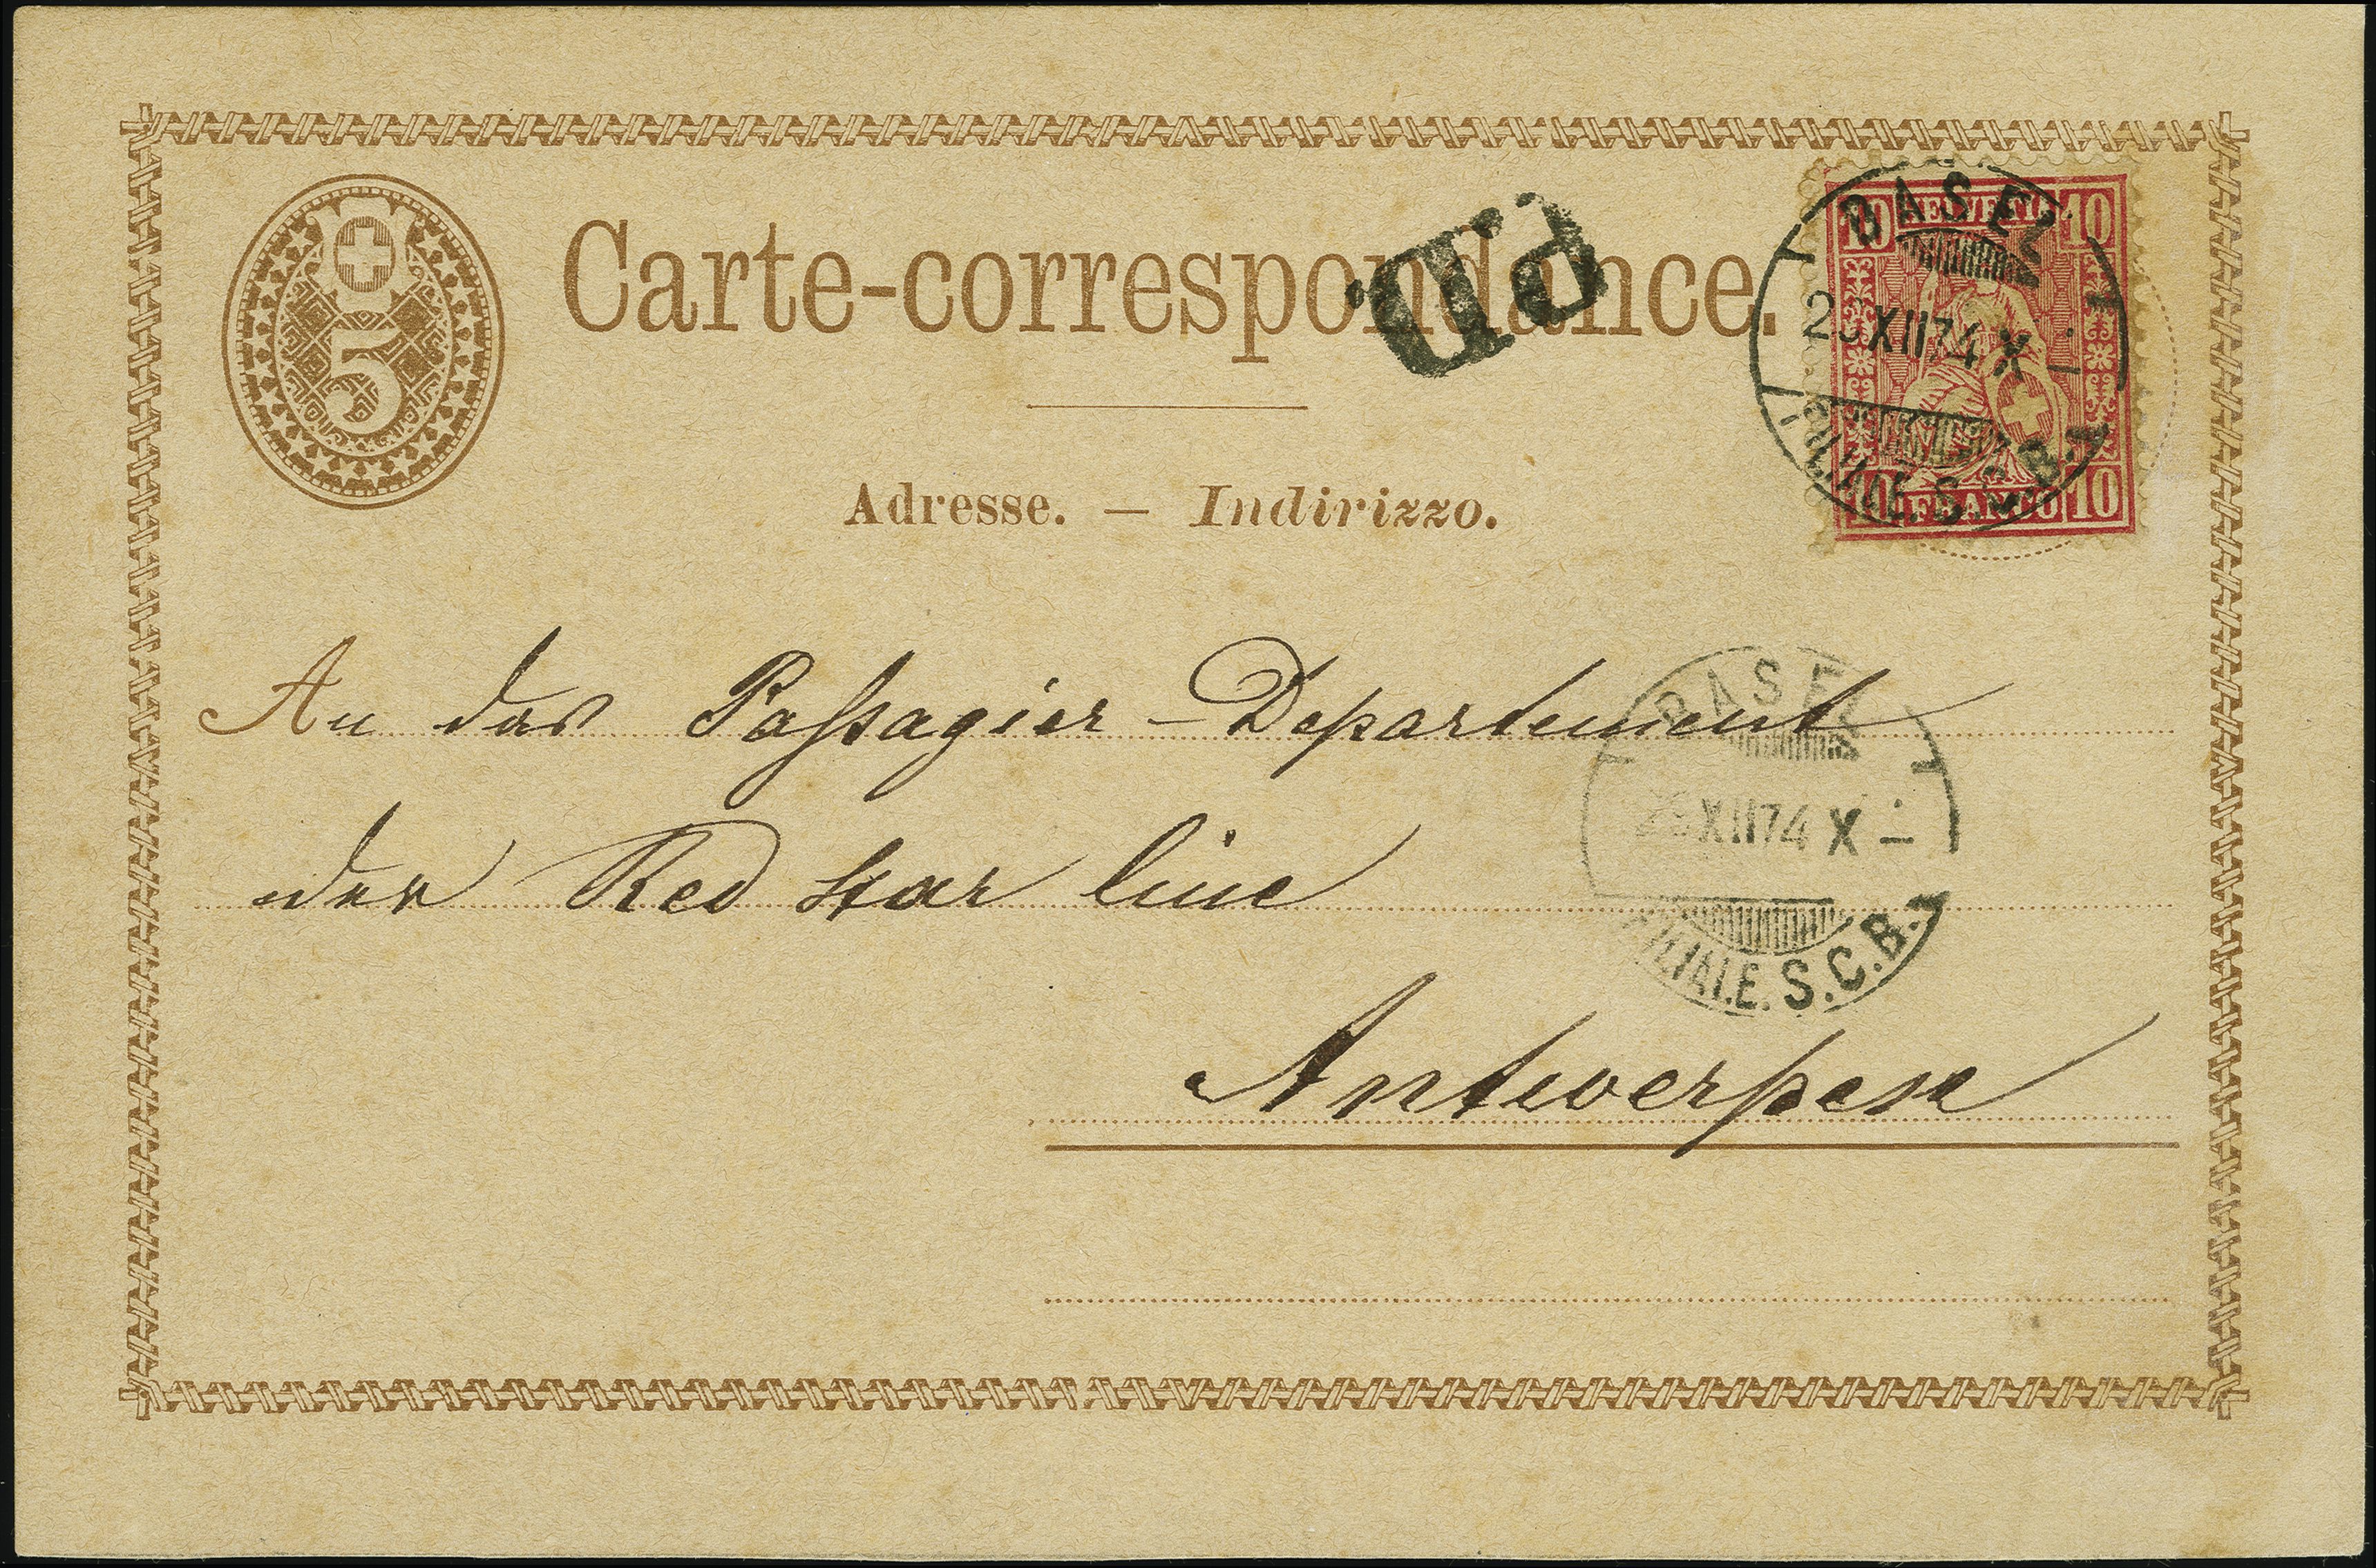 5
Carte-correspondance.
P.D.
10 HELVETIA 10
BASEL
XII 74 X
FILIALE. S.C.B.
10 FRANCO 10
Adresse. — Indirizzo.
An das Passagier-Departement
der Red Star line
Antwerpen
BASEL
XII 74 X
FILIALE. S.C.B.